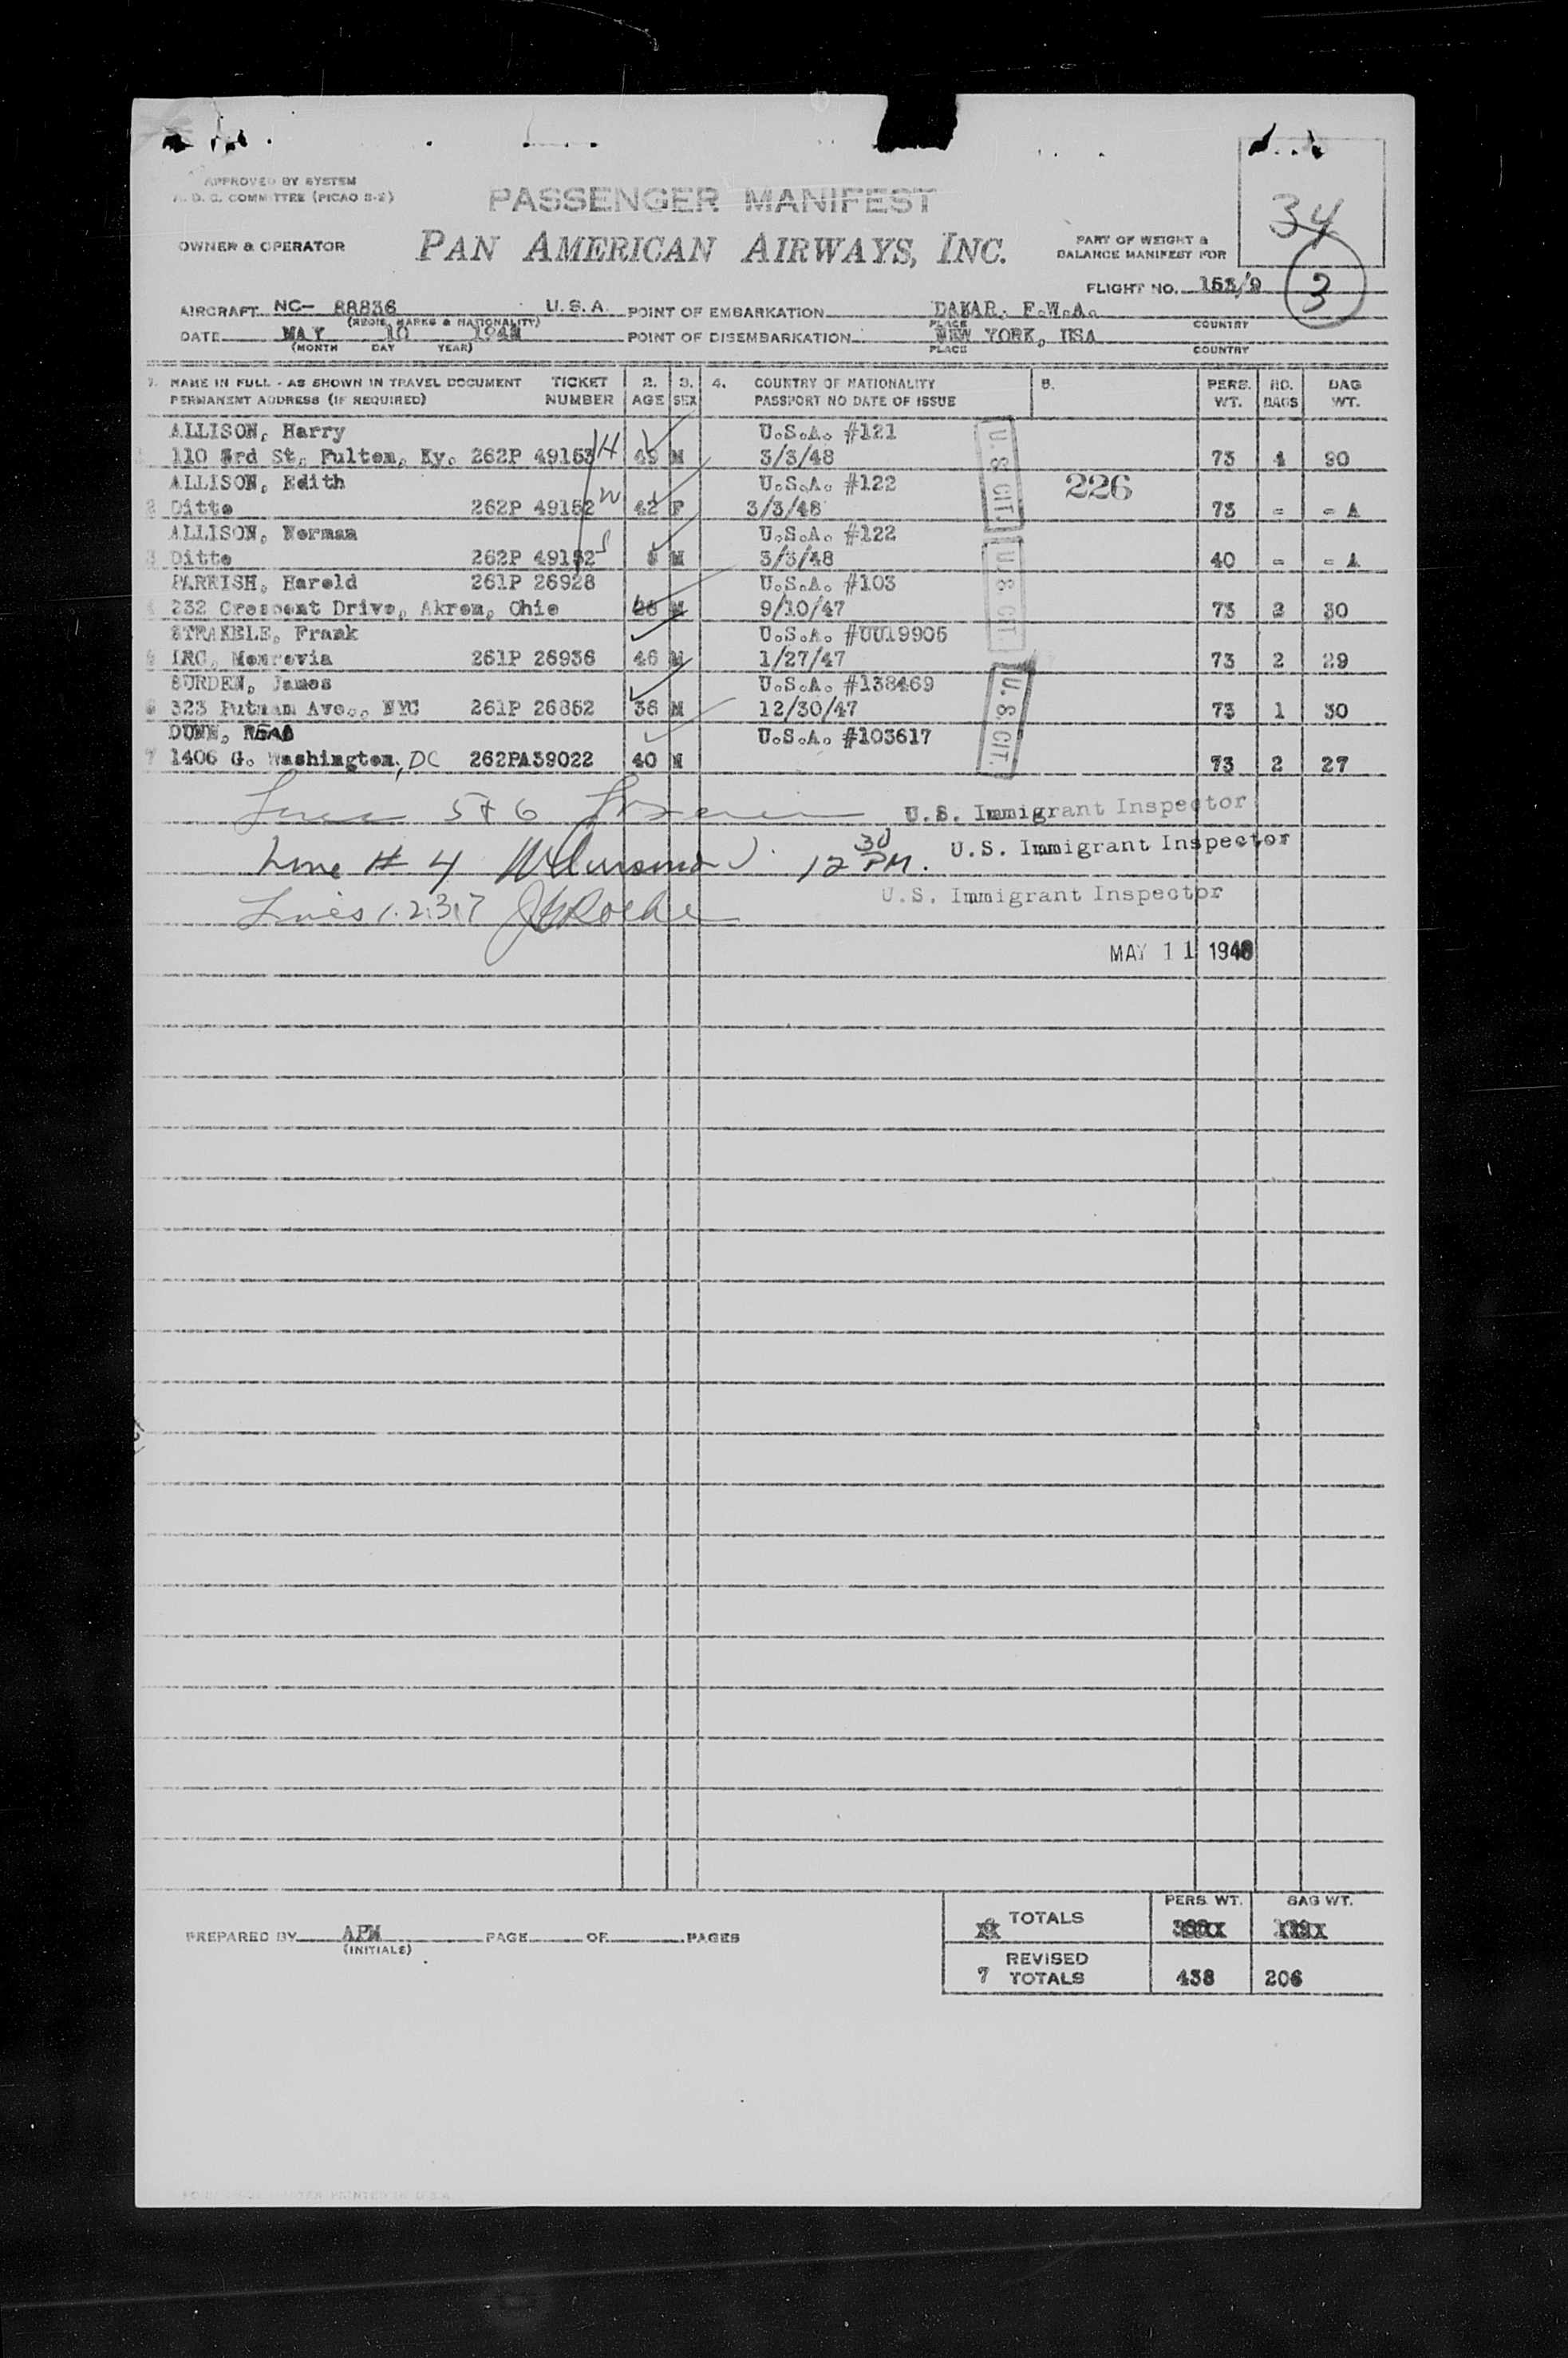 APPROVED BY SYSTEM
A. O. C. COMMITTEE (PICAO S-2)
PASSENGER MANIFEST
34
OWNER & OPERATOR
PAN AMERICAN AIRWAYS, INC.
PART OF WEIGHT &
BALANCE MANIFEST FOR
FLIGHT NO. 153/9
3
AIRCRAFT NC- 88836 U.S.A. POINT OF EMBARKATION DAKAR, F.W.A.
(REGIS. MARKS & NATIONALITY) PLACE COUNTRY
DATE MAY 10 1948 POINT OF DISEMBARKATION NEW YORK, USA
(MONTH DAY YEAR) PLACE COUNTRY
1. NAME IN FULL - AS SHOWN IN TRAVEL DOCUMENT TICKET 2. 3. 4. COUNTRY OF NATIONALITY 5. PERS. NO. BAG
PERMANENT ADDRESS (IF REQUIRED) NUMBER AGE SEX PASSPORT NO DATE OF ISSUE WT. BAGS WT.
ALLISON, Harry U.S.A. #121
110 3rd St, Fulton, Ky. 262P 49153 H 49 M 3/3/48 73 4 90
ALLISON, Edith U.S.A. #122 226
2 Ditto 262P 49152 W 42 F 3/3/48 73 - - A
ALLISON, Norman U.S.A. #122
3 Ditto 262P 49152 S M 3/3/48 40 - - A
PARRISH, Harold 261P 26928 U.S.A. #103
4 232 Crescent Drive, Akron, Ohio 26 M 9/10/47 73 2 30
STRAKELE, Frank U.S.A. #UU19905
5 IRC, Monrovia 261P 26936 46 M 1/27/47 73 2 29
BURDEN, James U.S.A. #138469
6 323 Putnam Ave., NYC 261P 26852 36 M 12/30/47 73 1 30
DUNN, U.S.A. #103617
7 1406 G. Washington, DC 262PA39022 40 M 73 2 27
U. S CIT.
U. S CIT.
U. S. CIT.
5 & 6 U.S. Immigrant Inspector
Line # 4 12 30 PM. U.S. Immigrant Inspector
Lines 1.2.3.7 U.S. Immigrant Inspector
MAY 11 1948
PERS. WT. BAG WT.
TOTALS
PREPARED BY APM PAGE OF PAGES
(INITIALS)
REVISED
7 TOTALS 438 206